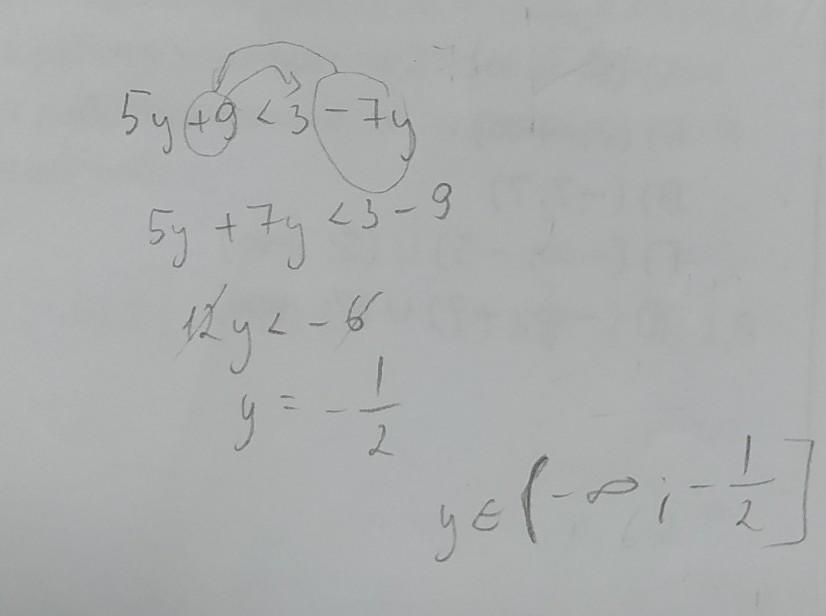 5y+9<3-7y
5y+7y<3-9
12y<-6
y=-1/2
y∈(-∞;-1/2]